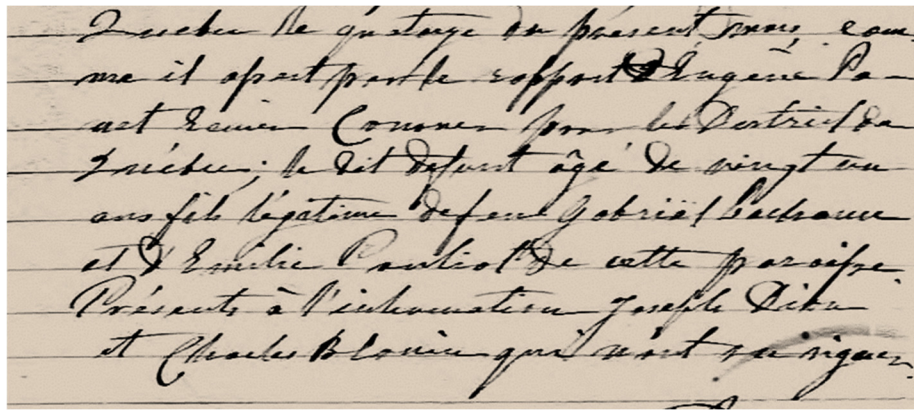 Québec le quatorze du présent mois, com-
me il apert par le rapport d'Eugène Pa-
net Ecuier Coroner pour le District de
Québec; le dit defunt âgé de vingt un
ans fils légitime de feu Gabriël
et d'Emilie Pouliot de cette paroisse
Présents à l'inhumation Joseph Dion
et Charles Blouin qui n'ont su signer.